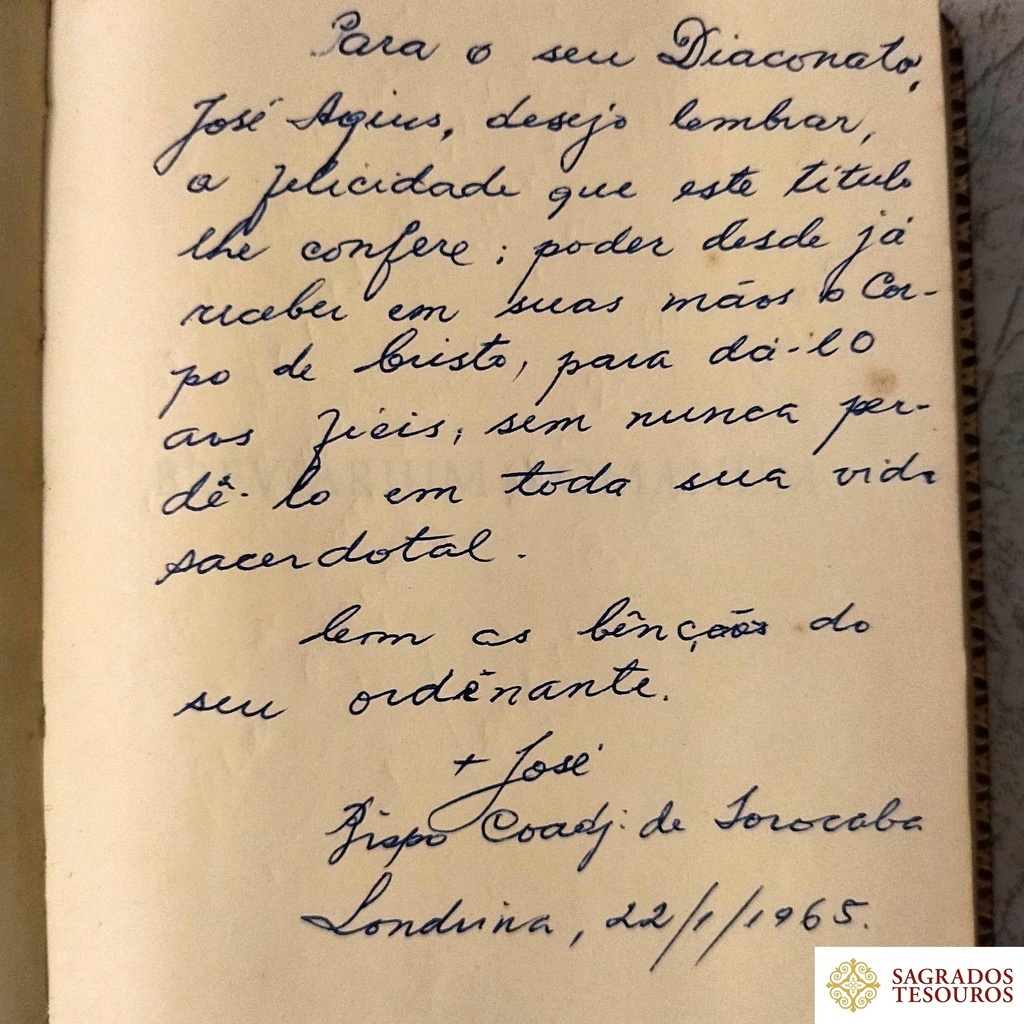 Para o seu Diaconato,
José Agius, desejo lembrar,
a felicidade que este título
lhe confere; poder desde já
receber em suas mãos o Cor-
po de Cristo, para dá-lO
aos fiéis, sem nunca per-
dê-lo em toda sua vida
sacerdotal.
Com as bênçãos do
seu ordenante.
+ José
Bispo Coadj. de Sorocaba
Londrina, 22/1/1965.
SAGRADOS
TESOUROS